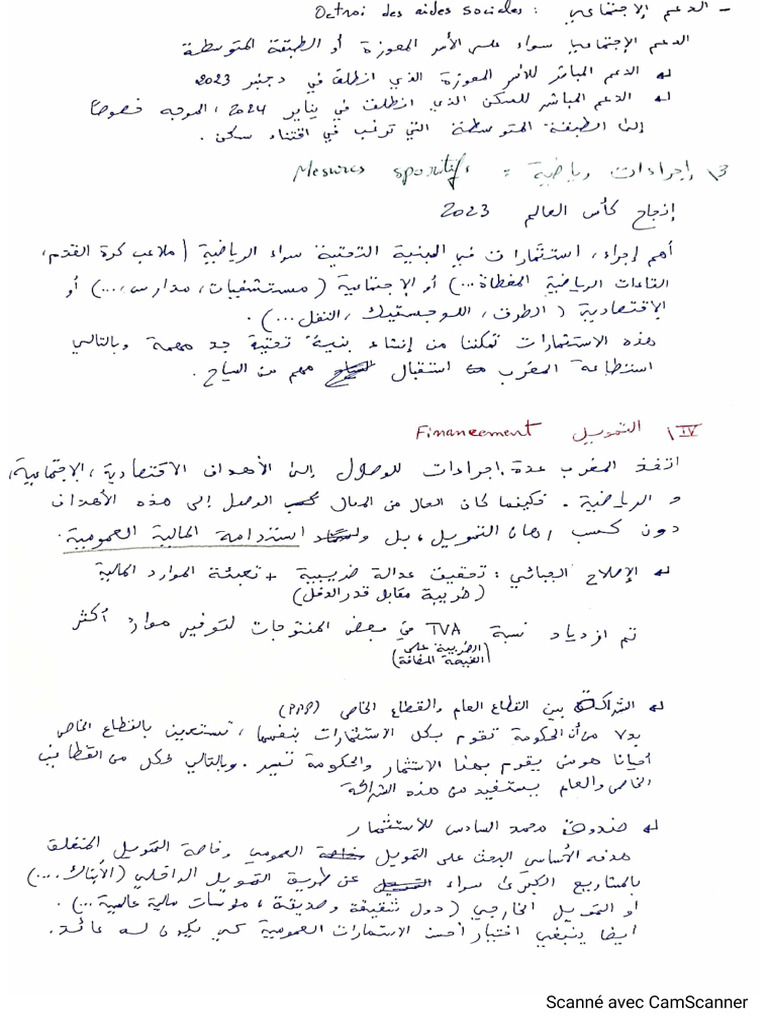 - الدعم الإجتماعي : Octroi des aides sociales
الدعم الإجتماعي سواء على الأسر المعوزة أو الطبقة المتوسطة
↳ الدعم المباشر للأسر المعوزة الذي انطلق في دجنبر 2023
↳ الدعم المباشر للسكن الذي انطلق في يناير 2024 ، الموجه خصوصا
إلى الطبقة المتوسطة التي ترغب في اقتناء سكن .
3\ إجراءات رياضية : Mesures sportifs
إنجاح كأس العالم 2023
أهم إجراء، استثمارات في البنية التحتية سواء الرياضية (ملاعب كرة القدم،
القاعات الرياضية المغطاة...) أو الإجتماعية (مستشفيات، مدارس،...) أو
الإقتصادية (الطرق، اللوجستيك، النقل...) .
هذه الاستثمارات تمكننا من إنشاء بنية تحتية جد مهمة وبالتالي
استطاعة المغرب استقبال مهم من السياح .
IV\ التمويل Financement
اتخذ المغرب عدة إجراءات للوصول إلى الأهداف الاقتصادية، الإجتماعية،
و الرياضية . فكيفما كان الحال من المحال الوصول إلى هذه الأهداف
دون كسب رهان التمويل، بل و استدامة المالية العمومية .
↳ الإصلاح الجبائي : تحقيق عدالة ضريبية + تعبئة الموارد المالية
(ضريبة مقابل قدر الدخل)
تم ازدياد نسبة TVA في بعض المنتوجات لتوفير موارد أكثر
(الضريبة على
القيمة المضافة)
↳ الشراكة بين القطاع العام والقطاع الخاص (PPP)
بدلا من أن الحكومة تقوم بكل الاستثمارات بنفسها، تستعين بالقطاع الخاص
أحيانا هو من يقوم بهذا الاستثمار والحكومة تسير . وبالتالي فكل من القطاعين
الخاص والعام يستفيد من هذه الشراكة
↳ صندوق محمد السادس للاستثمار
هدفه الأساسي البحث على التمويل العمومي وخاصة التمويل المتعلق
بالمشاريع الكبرى سواء عن طريق التمويل الداخلي (الأبناك...)
أو التمويل الخارجي (دول شقيقة وصديقة، مؤسسات مالية عالمية...) .
أيضا ينبغي اختيار أحسن الاستثمارات العمومية كي يكون له عائد .
Scanné avec CamScanner